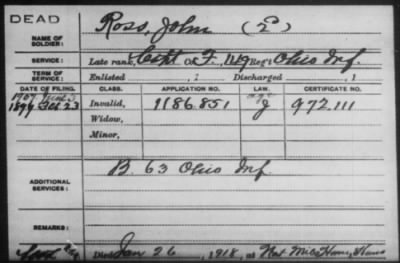 DEAD
NAME OF SOLDIER: Ross, John (E)
SERVICE: Late rank, Capt Co. F, 149 Reg't Ohio Inf.
TERM OF SERVICE: Enlisted , 1 Discharged , 1
DATE OF FILING. CLASS. APPLICATION NO. LAW. CERTIFICATE NO.
1907
1897 Oct. 23 Invalid, 1186.851 J 972,111
Widow,
Minor,
ADDITIONAL SERVICES: B. 63 Ohio Inf.
REMARKS:
Died Jan 26, 1918, at Nat Mil Home, Kans